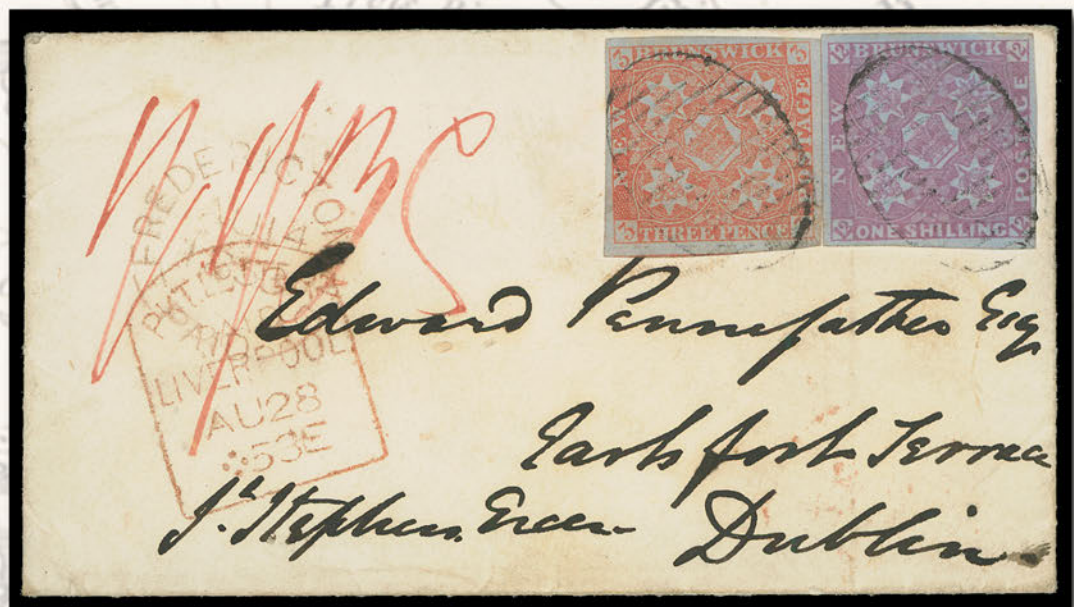 BRUNSWICK
NEW
POSTAGE
THREE PENCE
3
3
3
BRUNSWICK
NEW
POSTAGE
ONE SHILLING
12
12
12
12
FREDERICTON
LIVERPOOL
AU28
53E
Edward Pennefather Esq
Earlsfort Terrace
St. Stephens Green
Dublin